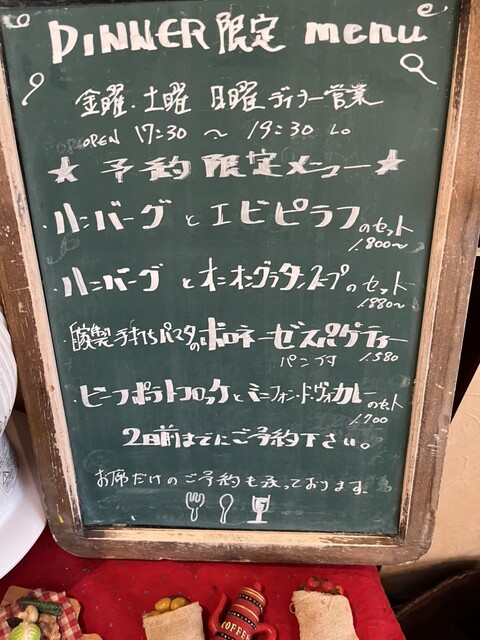 DINNER 限定 menu
金曜・土曜 日曜 ディナー営業
OPEN 17:30 〜 19:30 LO
★ 予約限定メニュー ★
・ハンバーグとエビピラフのセット
1.800〜
・ハンバーグとオニオングラタンスープのセット
1.880〜
・自家製手打ちパスタのボロネーゼスパゲティー
パン付 1.580
・ビーフポテトコロッケとミニフォン・ド・ヴォカレーのセット
1.700
2日前までにご予約下さい。
お席だけのご予約も承っております。
COFFEE